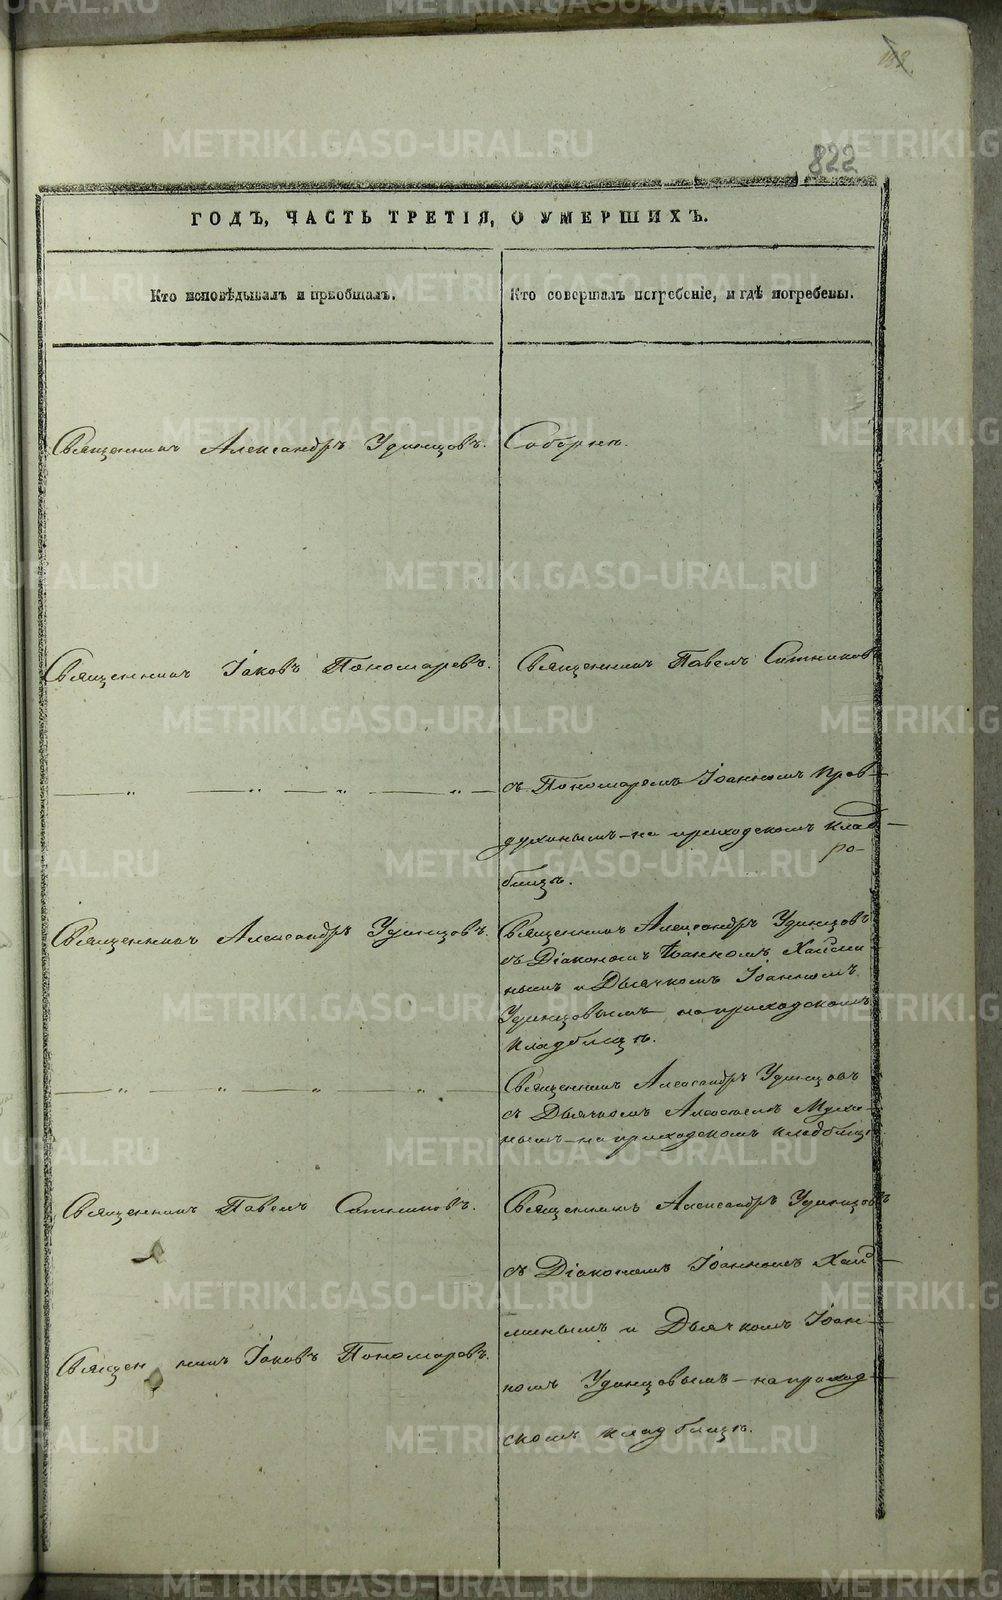 822
ГОДЪ, ЧАСТЬ ТРЕТІЯ, О УМЕРШИХЪ.
Кто исповѣдывалъ и пріобщалъ.
Кто совершалъ погребеніе, и гдѣ погребены.
Священникъ Александръ Удинцовъ.
Соборнѣ.
Священникъ Іаковъ Пономаревъ.
Священникъ Павелъ Сотниковъ
съ Пономаремъ Іоанномъ
на приходскомъ клад-
бищѣ.
Священникъ Александръ Удинцовъ.
Священникъ Александръ Удинцовъ
съ Діакономъ Іоанномъ
нымъ и Дьячкомъ Іоанномъ
Удинцовымъ на приходскомъ
кладбищѣ.
Священникъ Александръ Удинцовъ
съ Дьячкомъ Алексѣемъ Мухи-
нымъ на приходскомъ кладбищѣ
Священникъ Павелъ Сотниковъ.
Священникъ Александръ Удинцовъ
съ Діакономъ Іоанномъ
и Дьячкомъ Іоан-
номъ Удинцовымъ на приход-
скомъ кладбищѣ.
Священникъ Іаковъ Пономаревъ.
METRIKI.GASO-URAL.RU